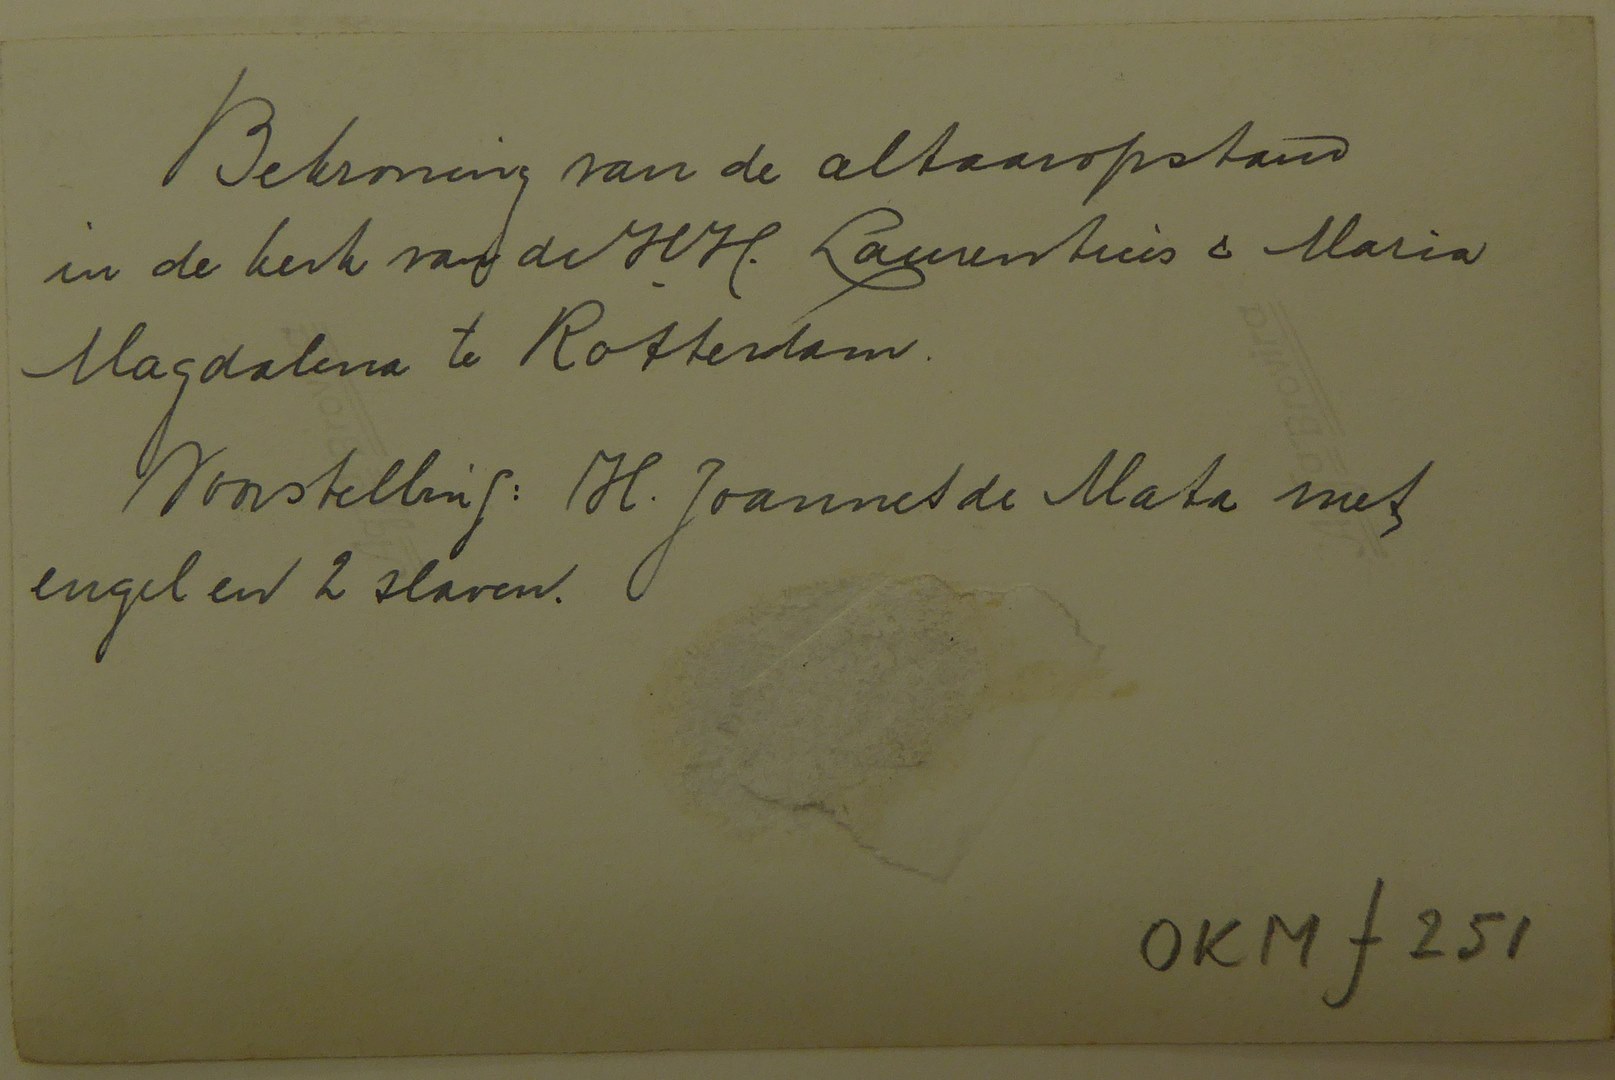 Bekroning van de altaaropstand
in de kerk van de HH. Laurentius & Maria
Magdalena te Rotterdam.
Voorstelling: H. Joannes de Mata met
engel en 2 slaven.
OKM f 251